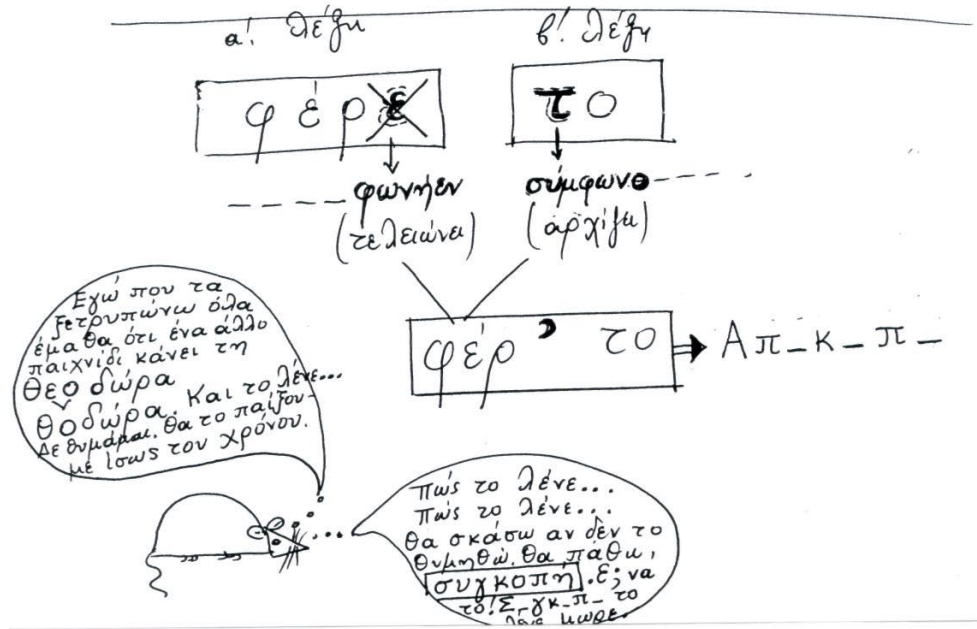 α! λέξη
β! λέξη
φέρε
το
φωνήεν
(τελειώνει)
σύμφωνο
(αρχίζει)
φέρ' το ⇒ Απ_κ_π_
Εγώ που τα
ξετρυπώνω όλα
έμαθα ότι ένα άλλο
παιχνίδι κάνει τη
Θεοδώρα
Θοδώρα. Και το λένε...
Δε θυμάμαι. Θα το παίξου-
με ίσως του χρόνου.
Πώς το λένε...
Πώς το λένε...
Θα σκάσω αν δεν το
θυμηθώ. Θα πάθω,
συγκοπή. Ε; να
το! Σ_γκ_π_ το
λένε μωρέ.